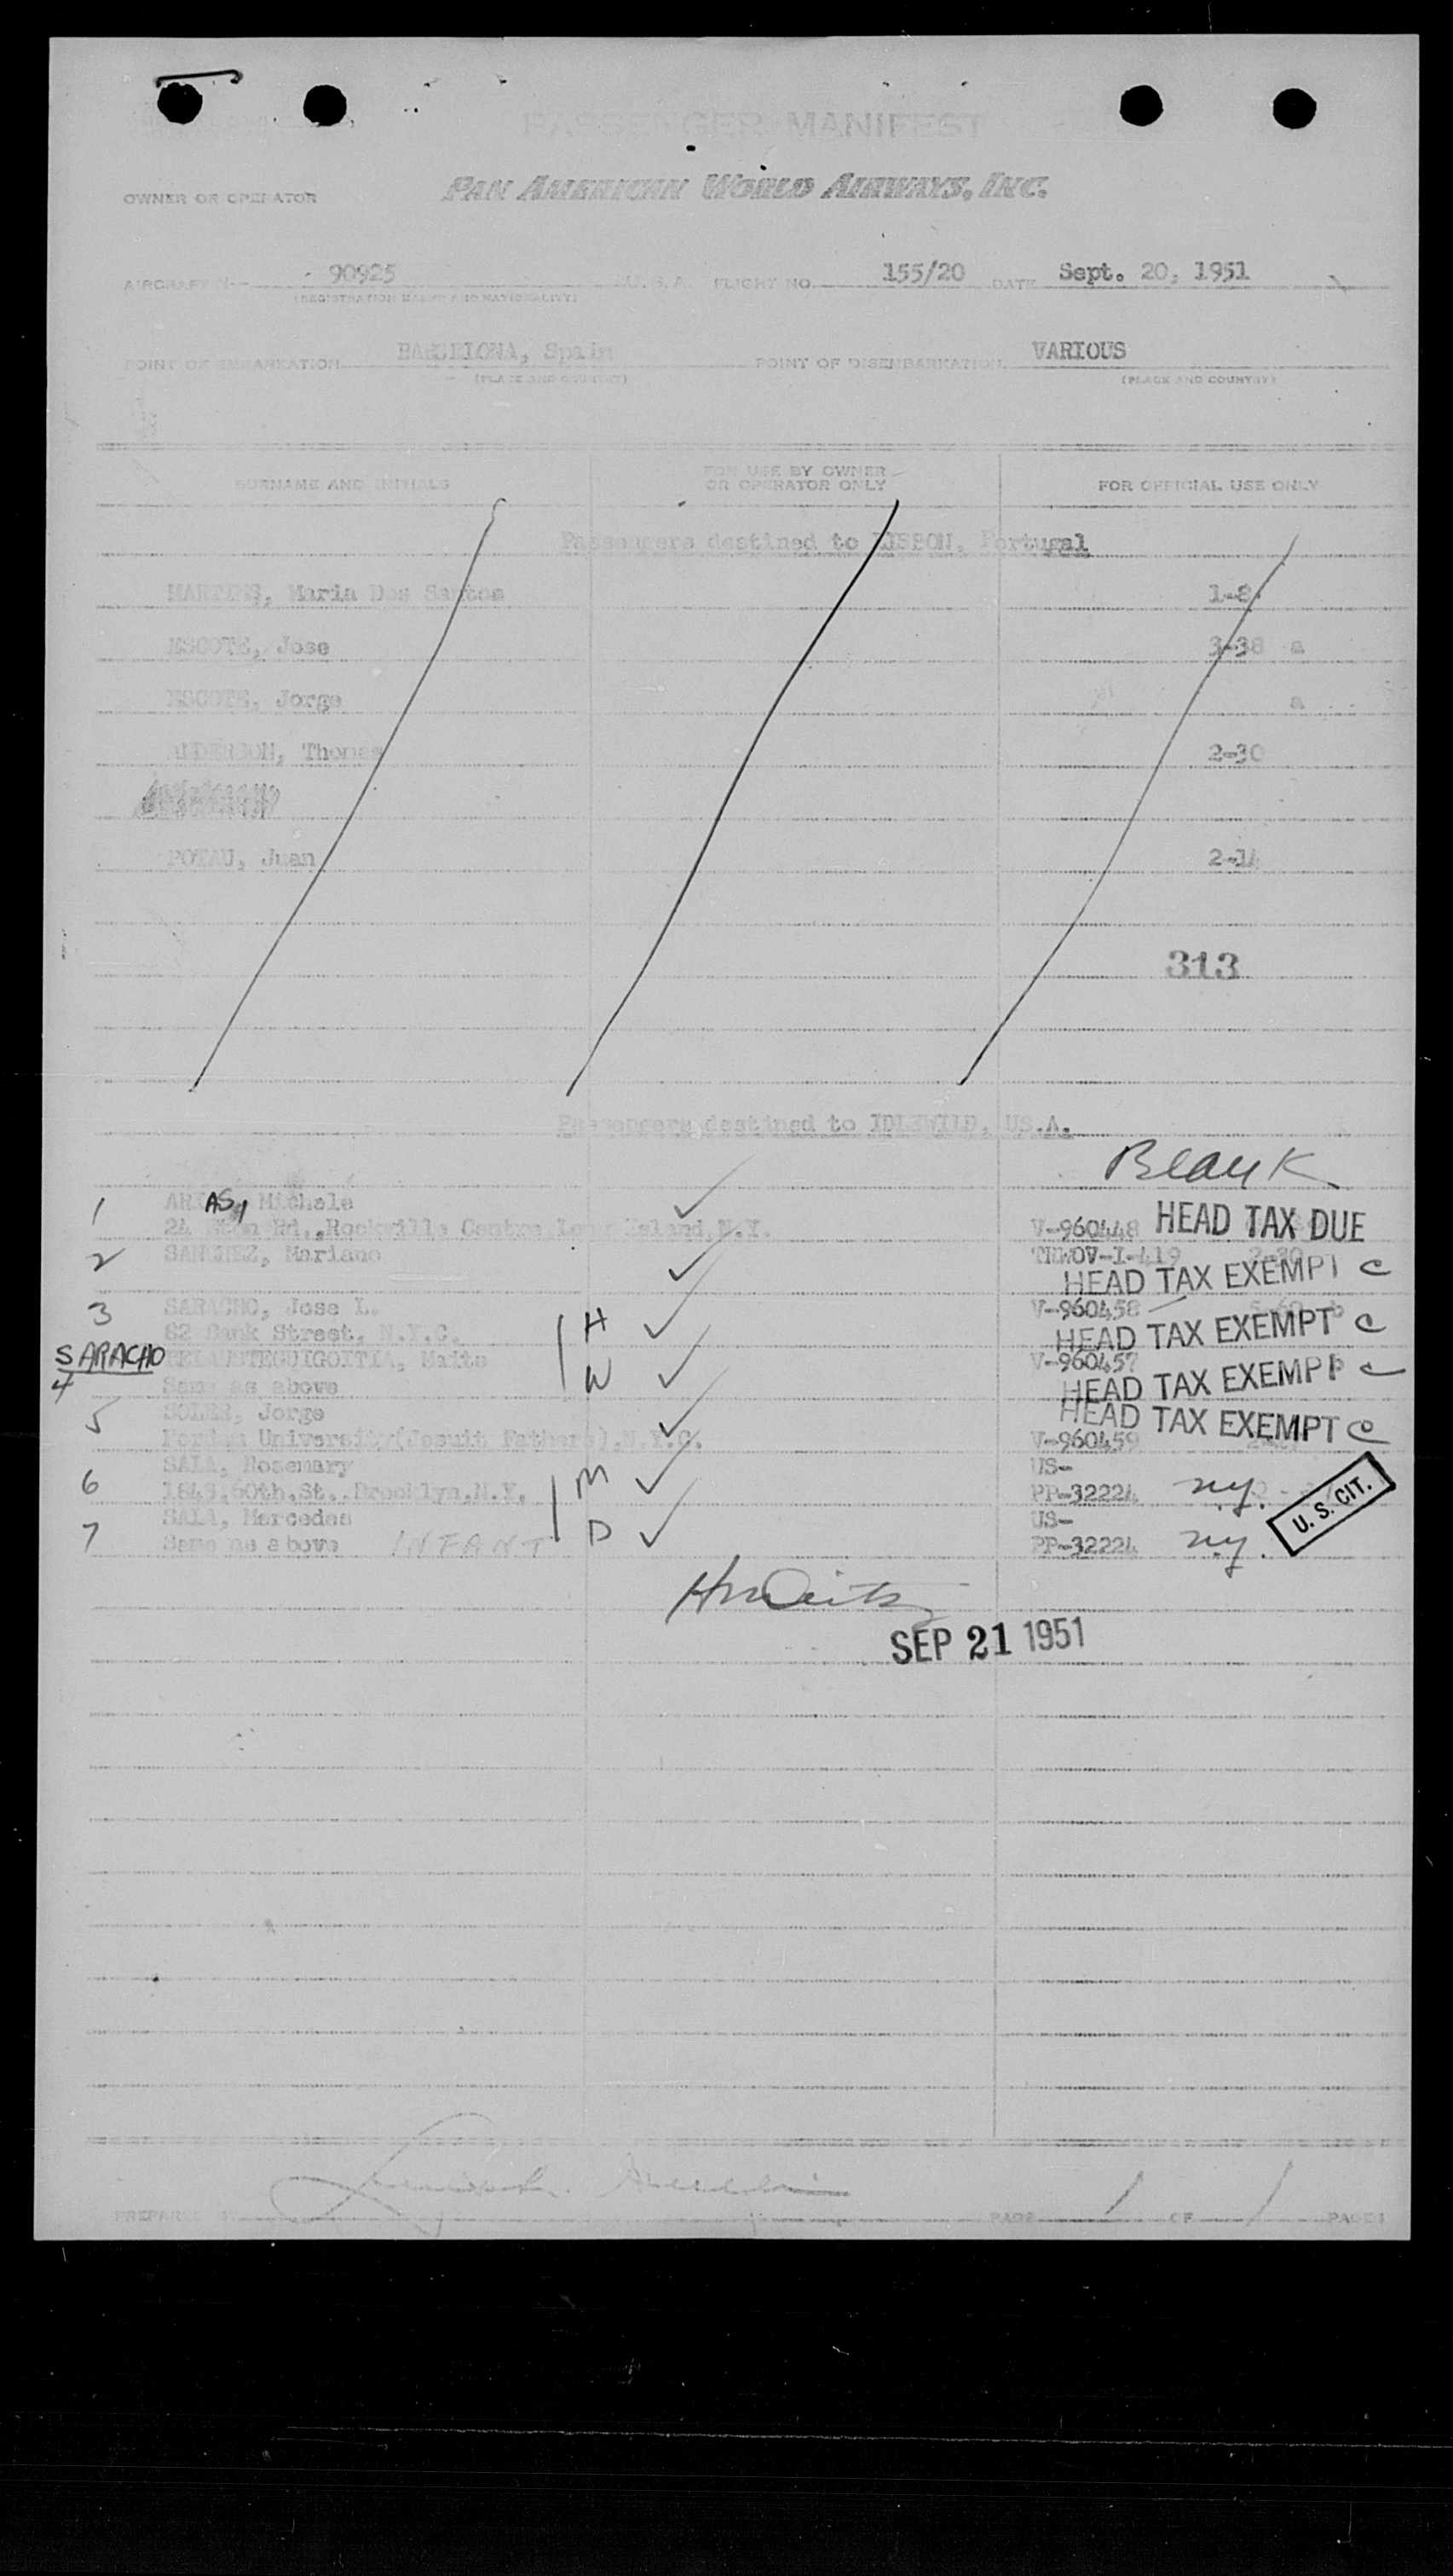 PASSENGER MANIFEST
OWNER OR OPERATOR PAN AMERICAN WORLD AIRWAYS, INC.
AIRCRAFT N— 90925 U.S.A. FLIGHT NO. 155/20 DATE Sept. 20, 1951
(REGISTRATION MARKS AND NATIONALITY)
POINT OF EMBARKATION BARCELONA, Spain POINT OF DISEMBARKATION VARIOUS
(PLACE AND COUNTRY) (PLACE AND COUNTRY)
SURNAME AND INITIALS FOR USE BY OWNER OR OPERATOR ONLY FOR OFFICIAL USE ONLY
Passengers destined to LISBON, Portugal
MARTINS, Maria Dos Santos 1-8
ESCOTE, Jose 3-38 a
ESCOTE, Jorge a
ANDERSON, Thomas 2-30
POTAU, Juan 2-14
313
Passengers destined to IDLEWILD, US.A.
Blank
1 AS, Michele
24 Rd., Rockville Centre Long Island, N.Y. V-960448 HEAD TAX DUE
2 SANCHEZ, Mariano TRWOV-I-419 2-30
HEAD TAX EXEMPT c
3 SARACHO, Jose L. V-960458
82 Bank Street, N.Y.C. H HEAD TAX EXEMPT c
SARACHO BELAUSTEGUIGOITIA, Maite V-960457
4 Same as above W HEAD TAX EXEMPT c
5 SOLER, Jorge HEAD TAX EXEMPT c
Fordam University (Jesuit Fathers), N.Y.C. V-960459
6 SALA, Rosemary US-
1849, 60th, St., Brooklyn, N.Y. M PP-32224 n.y. U. S. CIT.
7 SALA, Mercedes US-
Same as above INFANT D PP-32224 n.y.
SEP 21 1951
PREPARED BY PAGE 1 OF 1 PAGES